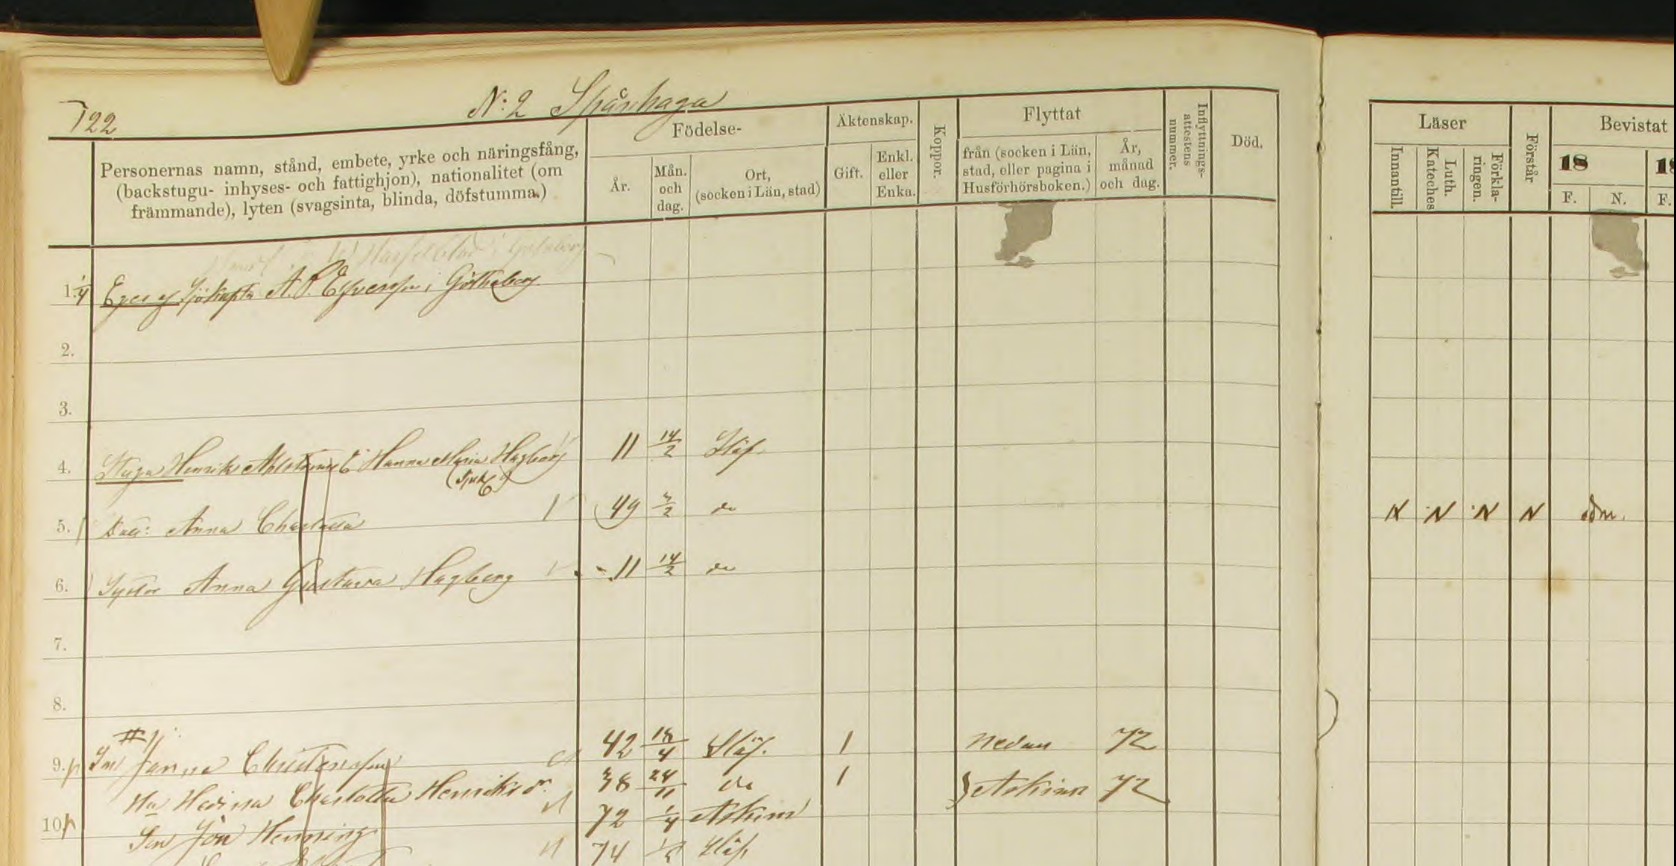 722
N:2 Spårhaga
Personernas namn, stånd, embete, yrke och näringsfång,
(backstugu- inhyses- och fattighjon), nationalitet (om
främmande), lyten (svagsinta, blinda, döfstumma.)
Födelse-
År.
Mån.
och
dag.
Ort,
(socken i Län, stad)
Äktenskap.
Gift.
Enkl.
eller
Enka.
Koppor.
Flyttat
från (socken i Län,
stad, eller pagina i
Husförhörsboken.)
År,
månad
och dag.
Inflyttnings-
attestens
nummer.
Död.
Läser
Innantill.
Luth.
Kateches
Förkla-
ringen.
Förstår
Bevistat
18
F. N.
18
F.
i Göteborg
1. 1/4 Eges af Sjökapten A. P. i Götheborg
2.
3.
4. Stuga Henrik E. Hanna Maria Hagberg 11 14/2 Släp.
5. Dott: Anna Charlotta 49 2/2 do N N N N adm.
6. Syster Anna Gustava Hagberg 11 14/2 do
7.
8.
9. Janne Christensson 42 18/4 Släp. 1 nedan 72
Hu Hedvina Charlotta Henriksdr. 38 24/11 do 1 Askim 72
10. Son Jön Henning 72 1/4 Askim
74 Släp